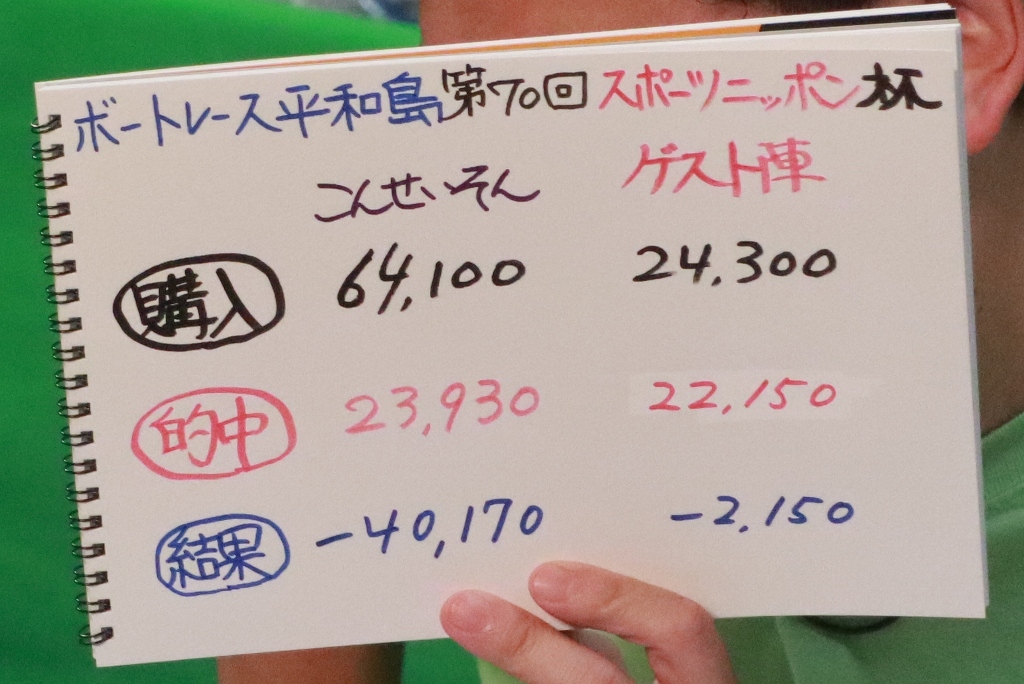 ボートレース平和島第70回スポーツニッポン杯
こんせいそん ゲスト陣
購入 64,100 24,300
的中 23,930 22,150
結果 -40,170 -2,150